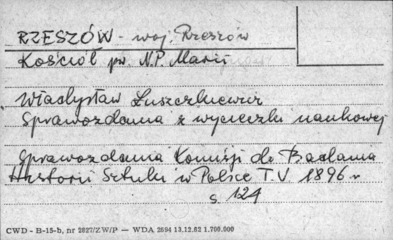 RZESZÓW - woj. Rzeszów
Kościół pw. N.P. Marii
Władysław Łuszczkiewicz
Sprawozdania z wycieczki naukowej
Sprawozdania Komisji do Badania
Historii Sztuki w Polsce T.V 1896 r
s. 124
CWD - B-15-b, nr 2827/ZW/P — WDA 2694 13.12.62 1.700.000